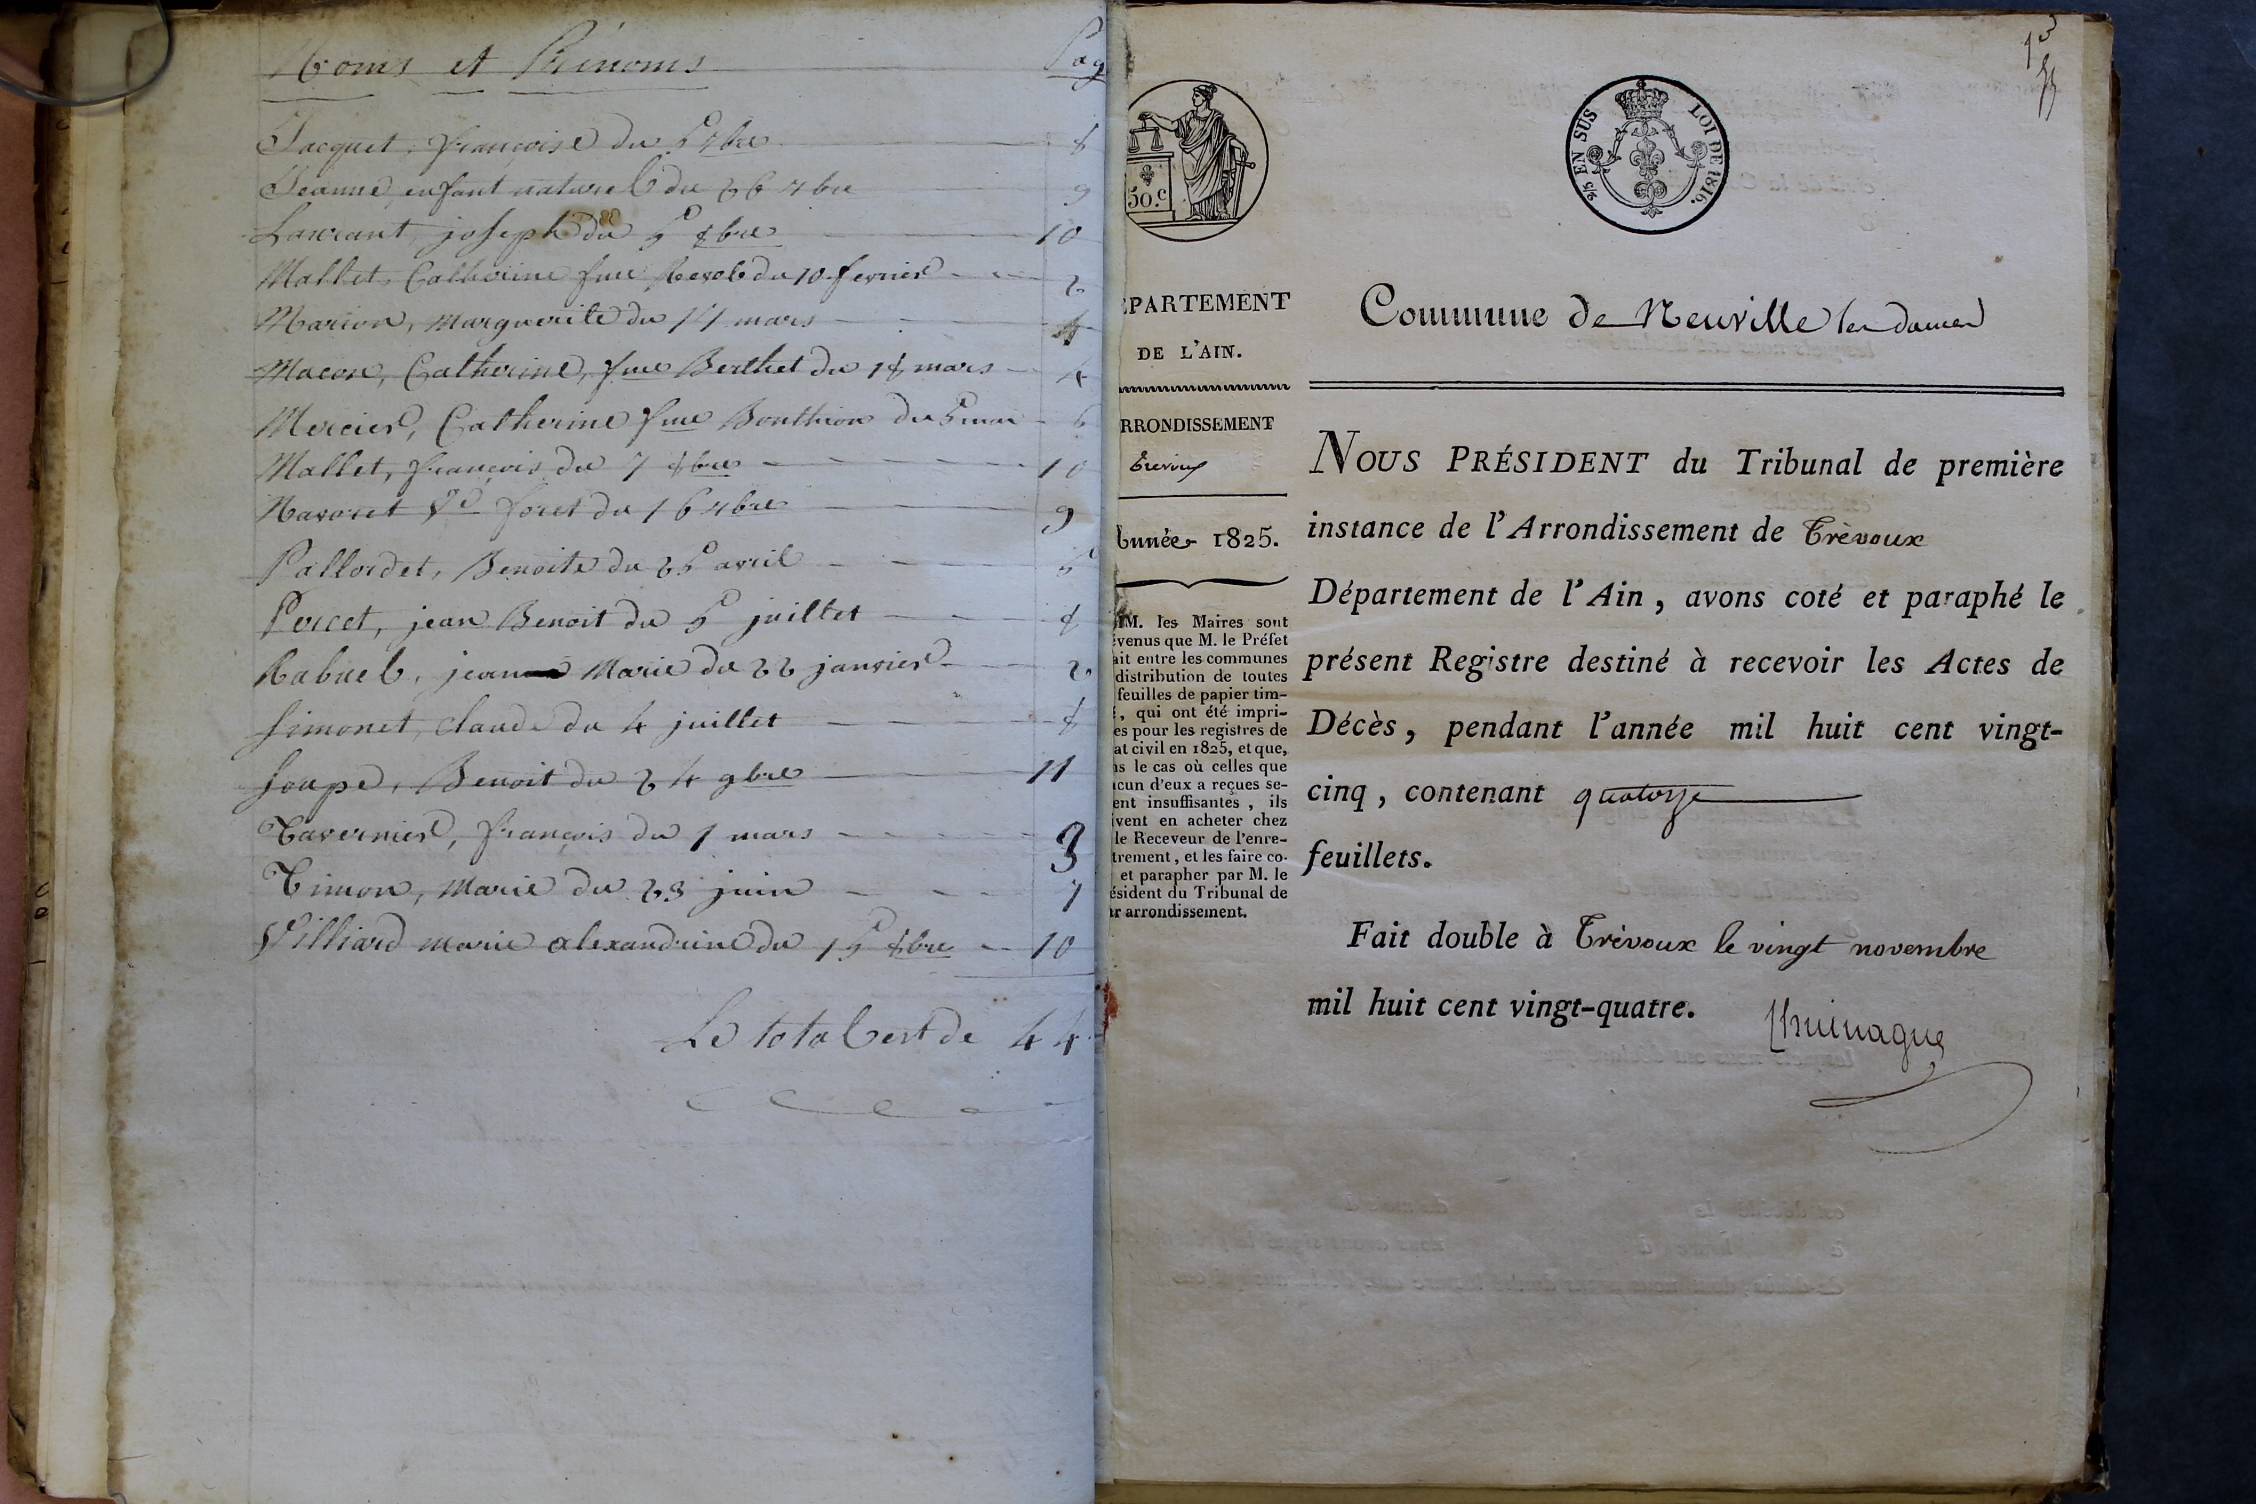 Noms et Prénoms Pag
Jacquet, françoise du 5 7bre 8
Jeanne, enfant naturel du 26 7bre 9
Laurant, joseph du 5 8bre 10
Mallet, Catherine fme Revol du 10 fevrier 2
Marion, Marguerite du 14 mars 4
Macon, Catherine, fme Berthet du 18 mars 4
Mercier, Catherine fme Bonthion du 5 mai 6
Mallet, françois du 7 8bre 10
Navoret Ve foret du 16 7bre 9
Pallordet, Benoite du 25 avril 5
Percet, jean Benoit du 5 juillet 8
Rabuel, jean Marie du 22 janvier 2
Simonet, claude du 4 juillet 8
Soupe, Benoit du 24 9bre 11
Tavernier, françois du 1 mars 3
Timon, Marie du 23 juin 7
Villiard marie alexandrine du 15 8bre 10
Le total est de 44
50.C
2/5 EN SUS LOI DE 1816.
ÉPARTEMENT
DE L'AIN.
RRONDISSEMENT
Trevoux
Année 1825.
MM. les Maires sont
évenus que M. le Préfet
ait entre les communes
distribution de toutes
feuilles de papier tim-
é, qui ont été impri-
es pour les registres de
at civil en 1825, et que,
ns le cas où celles que
acun d'eux a reçues se-
ent insuffisantes, ils
ivent en acheter chez
le Receveur de l'enre-
trement, et les faire co-
et parapher par M. le
ésident du Tribunal de
ur arrondissement.
Commune de Neuville les dames
NOUS PRÉSIDENT du Tribunal de première
instance de l'Arrondissement de Trèvoux
Département de l'Ain, avons coté et paraphé le
présent Registre destiné à recevoir les Actes de
Décès, pendant l'année mil huit cent vingt-
cinq, contenant quatorze
feuillets.
Fait double à Trévoux le vingt novembre
mil huit cent vingt-quatre.